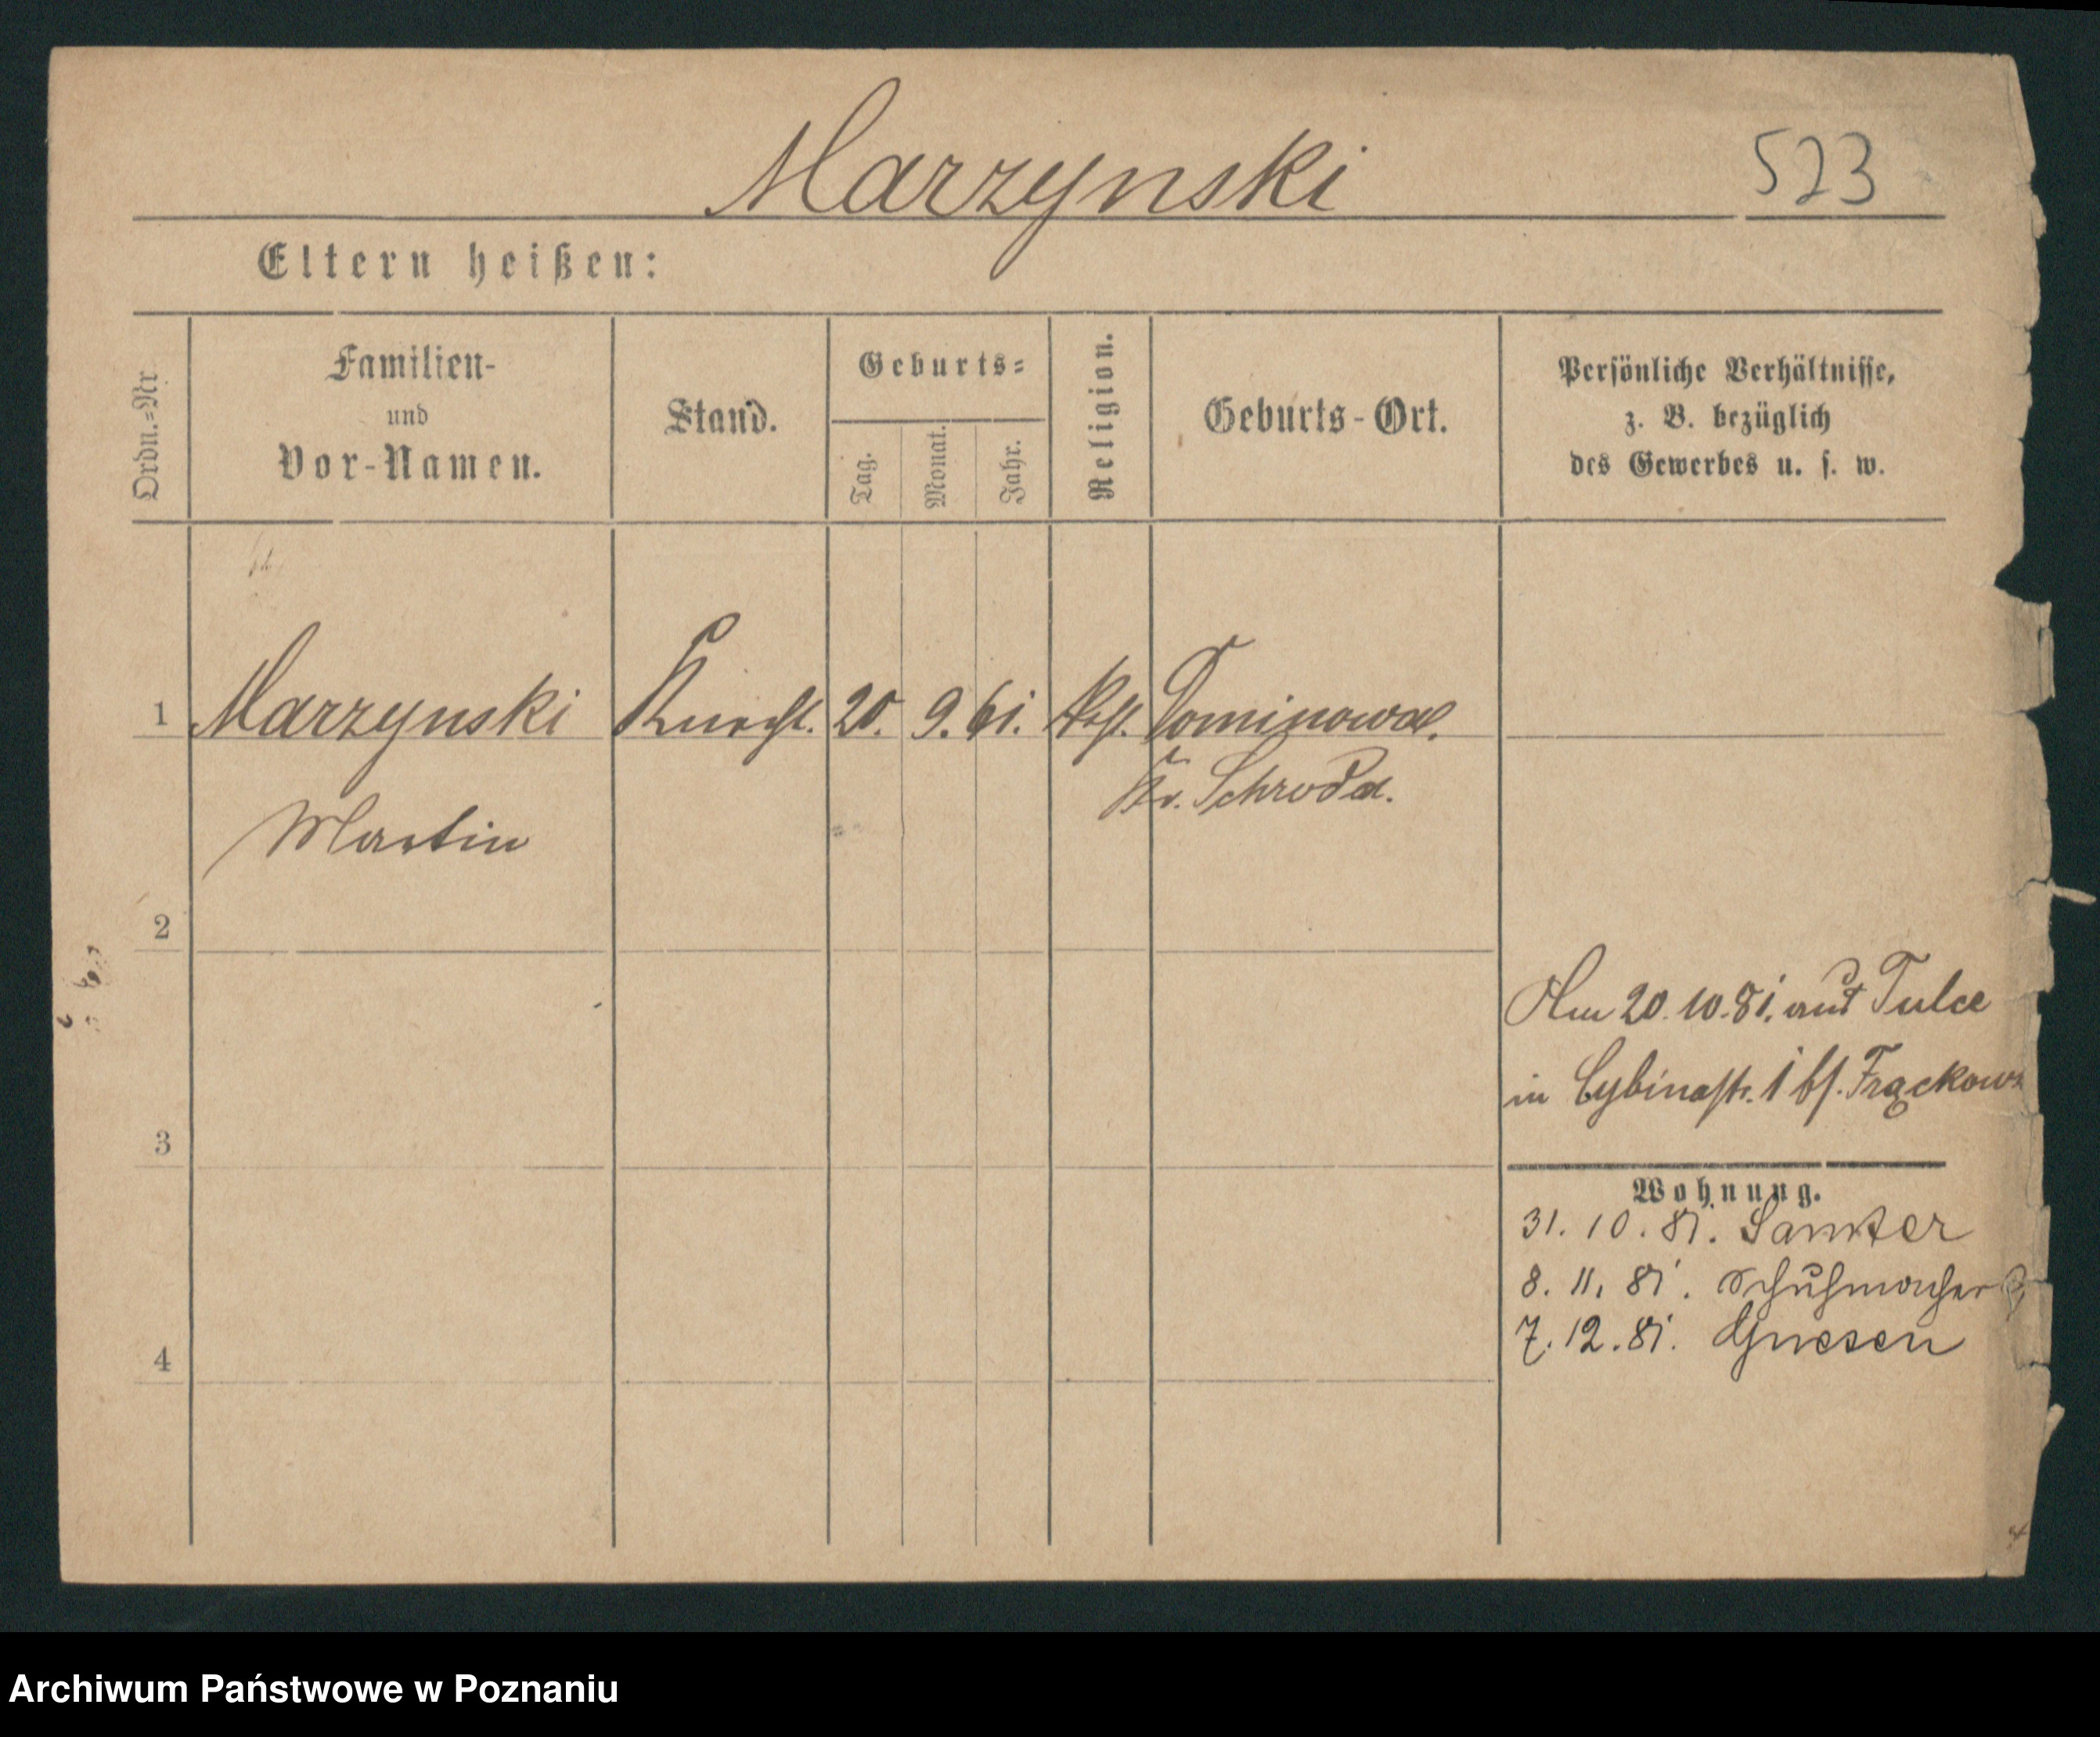 Marzynski 523
Eltern heißen:
Ordn.=Nr.
Familien-
und
Vor-Namen.
Stand.
Geburts=
Tag.
Monat.
Jahr.
Religion.
Geburts-Ort.
Persönliche Verhältnisse,
z. B. bezüglich
des Gewerbes u. s. w.
1 Marzynski Knecht. 20. 9. 61. kath. Dominowo.
Kr. Schroda.
Martin
2
Am 20. 10. 81. aus Tulce
in Cybinastr. 1 bs. Frąckows
3
Wohnung.
31. 10. 81. Samter
8. 11. 81. Schuhmacher
7. 12. 81. Gnesen
4
Archiwum Państwowe w Poznaniu